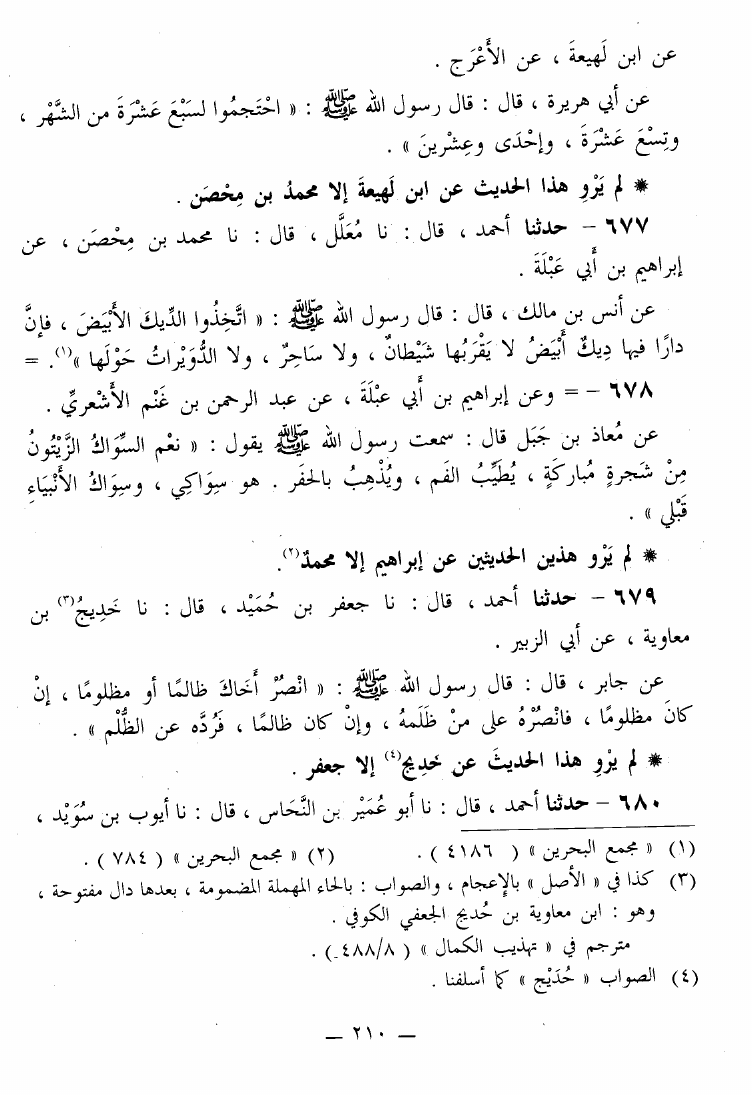 عن ابن لَهيعةَ ، عن الأَعْرَج .
عن أبي هريرة ، قال : قال رسول الله ﷺ : « احْتَجمُوا لسَبْعَ عَشْرَةَ من الشَّهْر ،
وتِسْعَ عَشْرَةَ ، وإحْدَى وعِشْرينَ » .
* لم يَرْوِ هذا الحديث عن ابن لَهيعةَ إلا محمدُ بن مِحْصَن .
٦٧٧ – حدثنا أحمد ، قال : نا مُعَلَّل ، قال : نا محمد بن مِحْصَن ، عن
إبراهيم بن أَبي عَبْلَةَ .
عن أنس بن مالك ، قال : قال رسول الله ﷺ : « اتَّخِذُوا الدِّيكَ الأَبْيَضَ ، فإنَّ
دارًا فيها دِيكٌ أَبْيَضُ لا يَقْرَبُها شَيْطانٌ ، ولا سَاحِرٌ ، ولا الدُّوَيْراتُ حَوْلَها »(١). =
٦٧٨ – = وعن إبراهيم بن أَبي عبْلَةَ ، عن عبد الرحمن بن غَنْم الأشْعريِّ .
عن مُعاذ بن جَبَل قال : سمعت رسول الله ﷺ يقول : « نعْم السِّوَاكُ الزَّيْتُونُ
مِنْ شَجرةٍ مُباركَةٍ ، يُطيِّبُ الفَم ، ويُذْهِبُ بالحَفَر . هو سِوَاكِي ، وسِوَاكُ الأَنْبيَاءِ
قَبْلي » .
* لم يَرْو هذين الحديثين عن إبراهيم إلا محمدٌ(٢).
٦٧٩ – حدثنا أحمد ، قال : نا جعفر بن حُمَيْد ، قال : نا خَدِيجُ(٣) بن
معاوية ، عن أبي الزبير .
عن جابر ، قال : قال رسول الله ﷺ : « انْصُرْ أَخَاكَ ظالمًا أو مظلومًا ، إنْ
كانَ مظلومًا ، فانْصُرْهُ على منْ ظَلَمهُ ، وإنْ كان ظالمًا ، فَرُدَّه عن الظُّلْم » .
* لم يرْوِ هذا الحديثَ عن خَدِيج(٤) إلا جعفر .
٦٨٠ – حدثنا أحمد ، قال : نا أبو عُمَيْر بن النَّحَاس ، قال : نا أيوب بن سُوَيْد ،
(١) « مجمع البحرين » ( ٤١٨٦ ) . (٢) « مجمع البحرين » ( ٧٨٤ ) .
(٣) كذا في « الأصل » بالإعجام ، والصواب : بالحاء المهملة المضمومة ، بعدها دال مفتوحة ،
وهو : ابن معاوية بن حُديج الجعفي الكوفي .
مترجم في « تهذيب الكمال » ( ٤٨٨/٨ ) .
(٤) الصواب « حُدَيْج » كما أسلفنا .
— ٢١٠ —